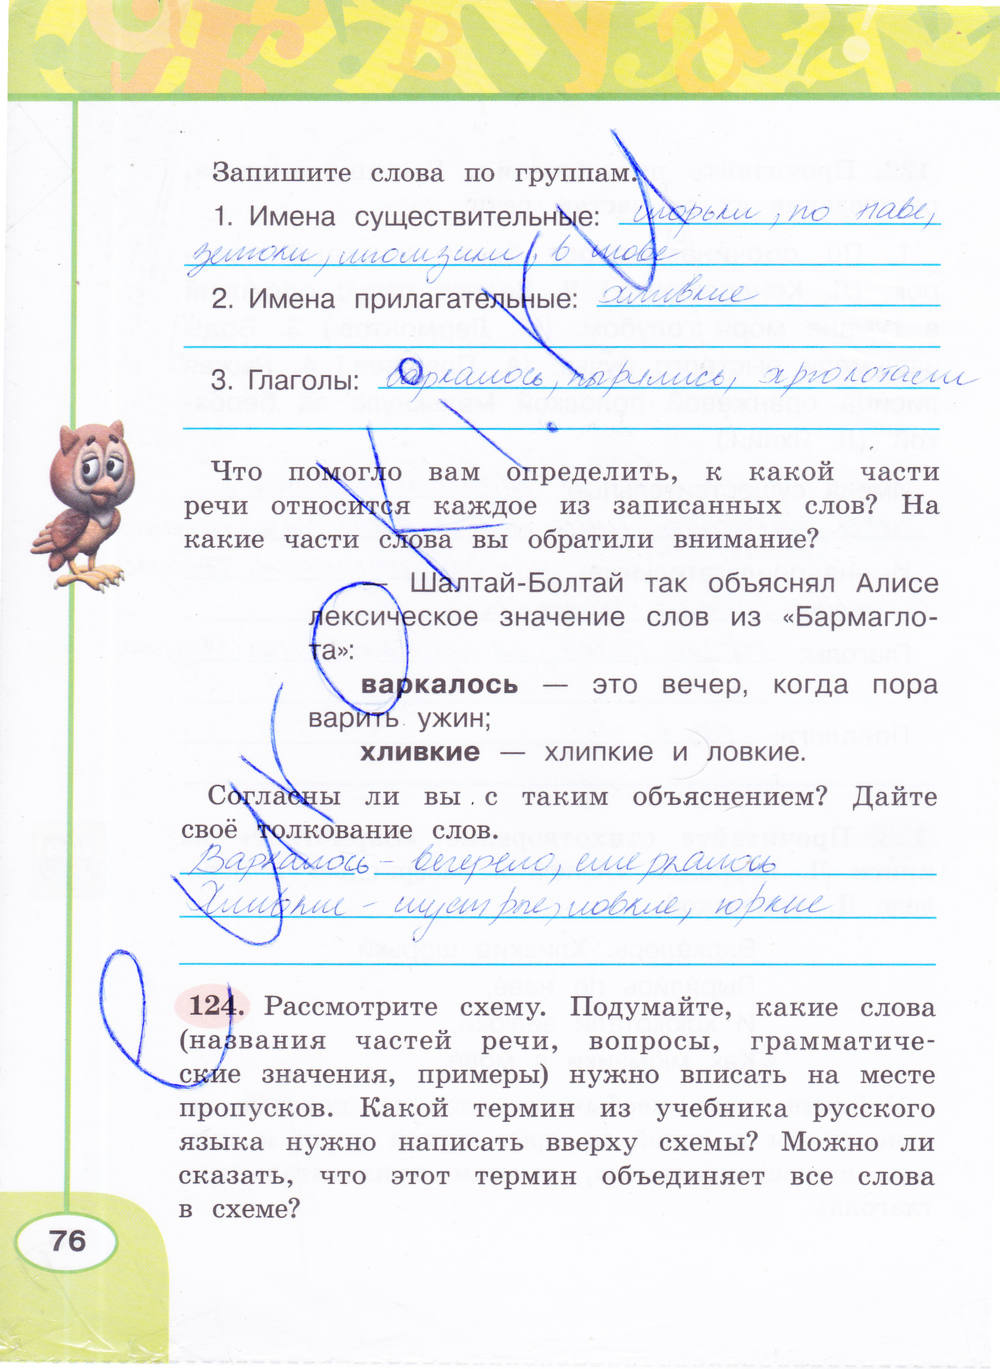 Запишите слова по группам.
1. Имена существительные: шорьки, по наве,
зелюки, мюмзики, в мове
2. Имена прилагательные: хливкие
3. Глаголы: варкалось, пырялись, хрюкотали
Что помогло вам определить, к какой части
речи относится каждое из записанных слов? На
какие части слова вы обратили внимание?
— Шалтай-Болтай так объяснял Алисе
лексическое значение слов из «Бармагло-
та»:
варкалось — это вечер, когда пора
варить ужин;
хливкие — хлипкие и ловкие.
Согласны ли вы с таким объяснением? Дайте
своё толкование слов.
Варкалось – вечерело, смеркалось
Хливкие – шустрые, ловкие, юркие
124. Рассмотрите схему. Подумайте, какие слова
(названия частей речи, вопросы, грамматиче-
ские значения, примеры) нужно вписать на месте
пропусков. Какой термин из учебника русского
языка нужно написать вверху схемы? Можно ли
сказать, что этот термин объединяет все слова
в схеме?
76